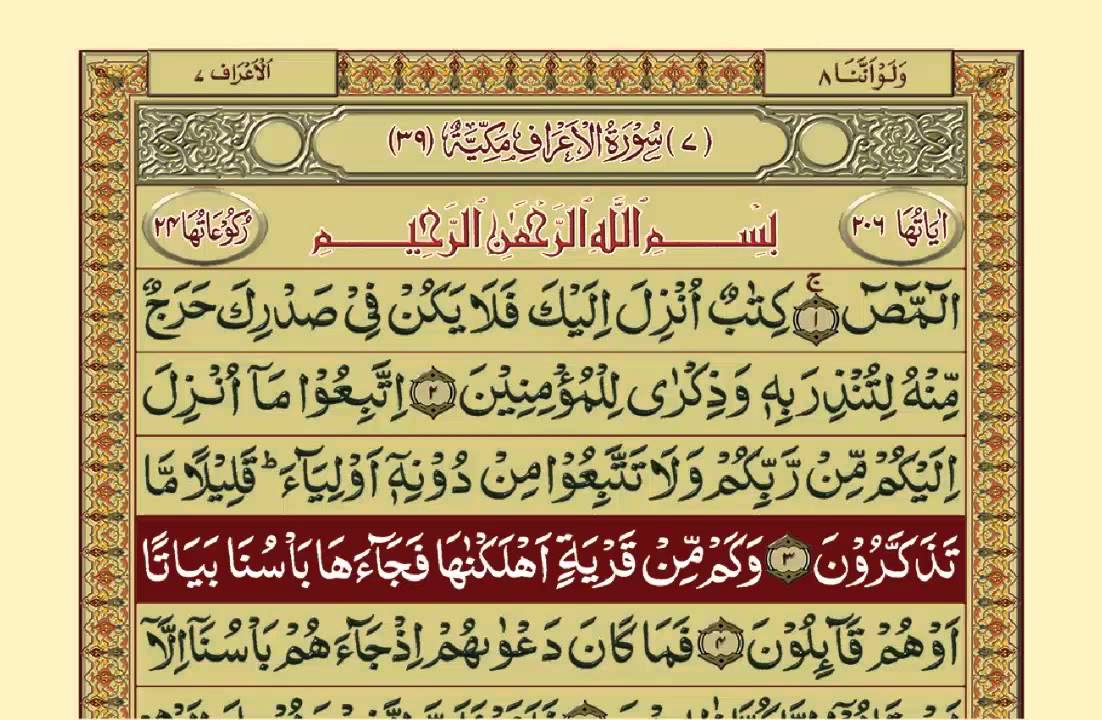 وَلَوْ اَنَّنَا ۸
اَلْاَعْرَاف ۷
(۷) سُوْرَةُ الْاَعْرَافِ مَكِّيَّةٌ (۳۹)
اٰیَاتُهَا ۲۰۶
بِسْمِ اللّٰهِ الرَّحْمٰنِ الرَّحِیْمِ
رُكُوْعَاتُهَا ۲۴
الٓمّٓصٓ ۱ ج كِتٰبٌ اُنْزِلَ اِلَیْكَ فَلَا یَكُنْ فِیْ صَدْرِكَ حَرَجٌ
مِّنْهُ لِتُنْذِرَ بِهٖ وَ ذِكْرٰی لِلْمُؤْمِنِیْنَ ۲ اِتَّبِعُوْا مَاۤ اُنْزِلَ
اِلَیْكُمْ مِّنْ رَّبِّكُمْ وَ لَا تَتَّبِعُوْا مِنْ دُوْنِهٖۤ اَوْلِیَآءَ ؕ قَلِیْلًا مَّا
تَذَكَّرُوْنَ ۳ وَ كَمْ مِّنْ قَرْیَةٍ اَهْلَكْنٰهَا فَجَآءَهَا بَاْسُنَا بَیَاتًا
اَوْ هُمْ قَآىِٕلُوْنَ ۴ فَمَا كَانَ دَعْوٰىهُمْ اِذْ جَآءَهُمْ بَاْسُنَاۤ اِلَّاۤ